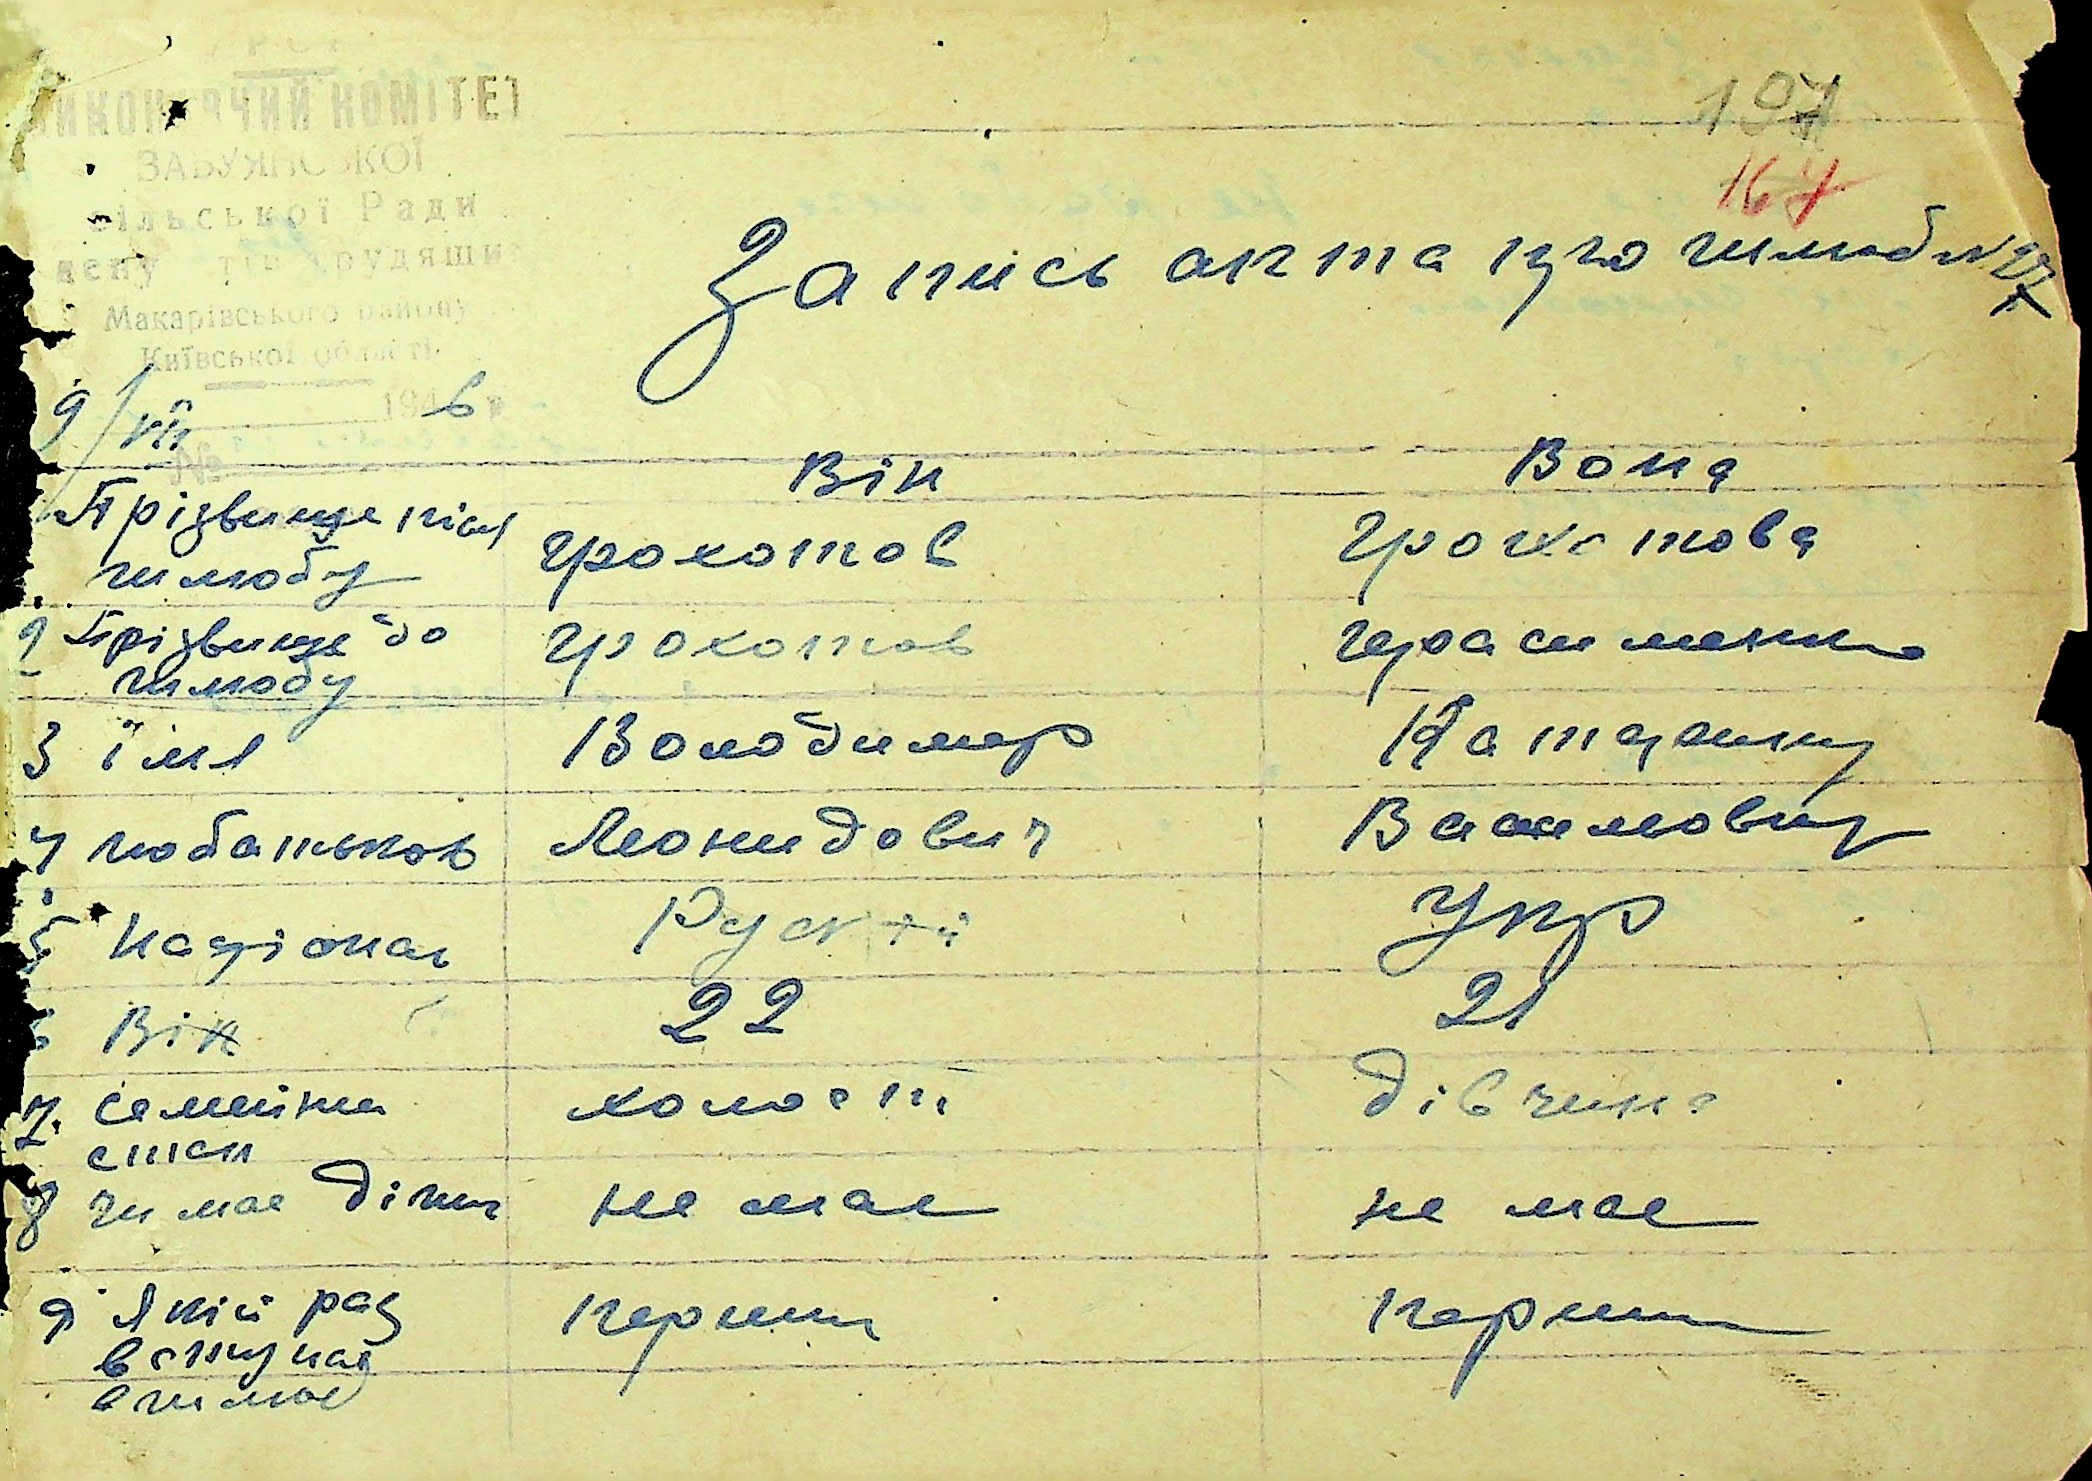 УРСР
ВИКОНАВЧИЙ КОМІТЕТ
ЗАБУЯНСЬКОЇ
сільської Ради
депутатів трудящих
Макарівського району
Київської області
9/VII 1946 р
№
197
167
Запись акта про шлюб №27
Він Вона
Прізвище після
шлюбу Грохотов Грохотова
2 Прізвище до
шлюбу Грохотов Герасименко
3 їмя Володимер
4 побатьков Леонидович
5 Націонал Руский Укр
6 Вік 22 21
7. Семейни
стан холост дівчина
8 чи має діти не має не має
9 Якій раз
вступає
в шлюб перши перши